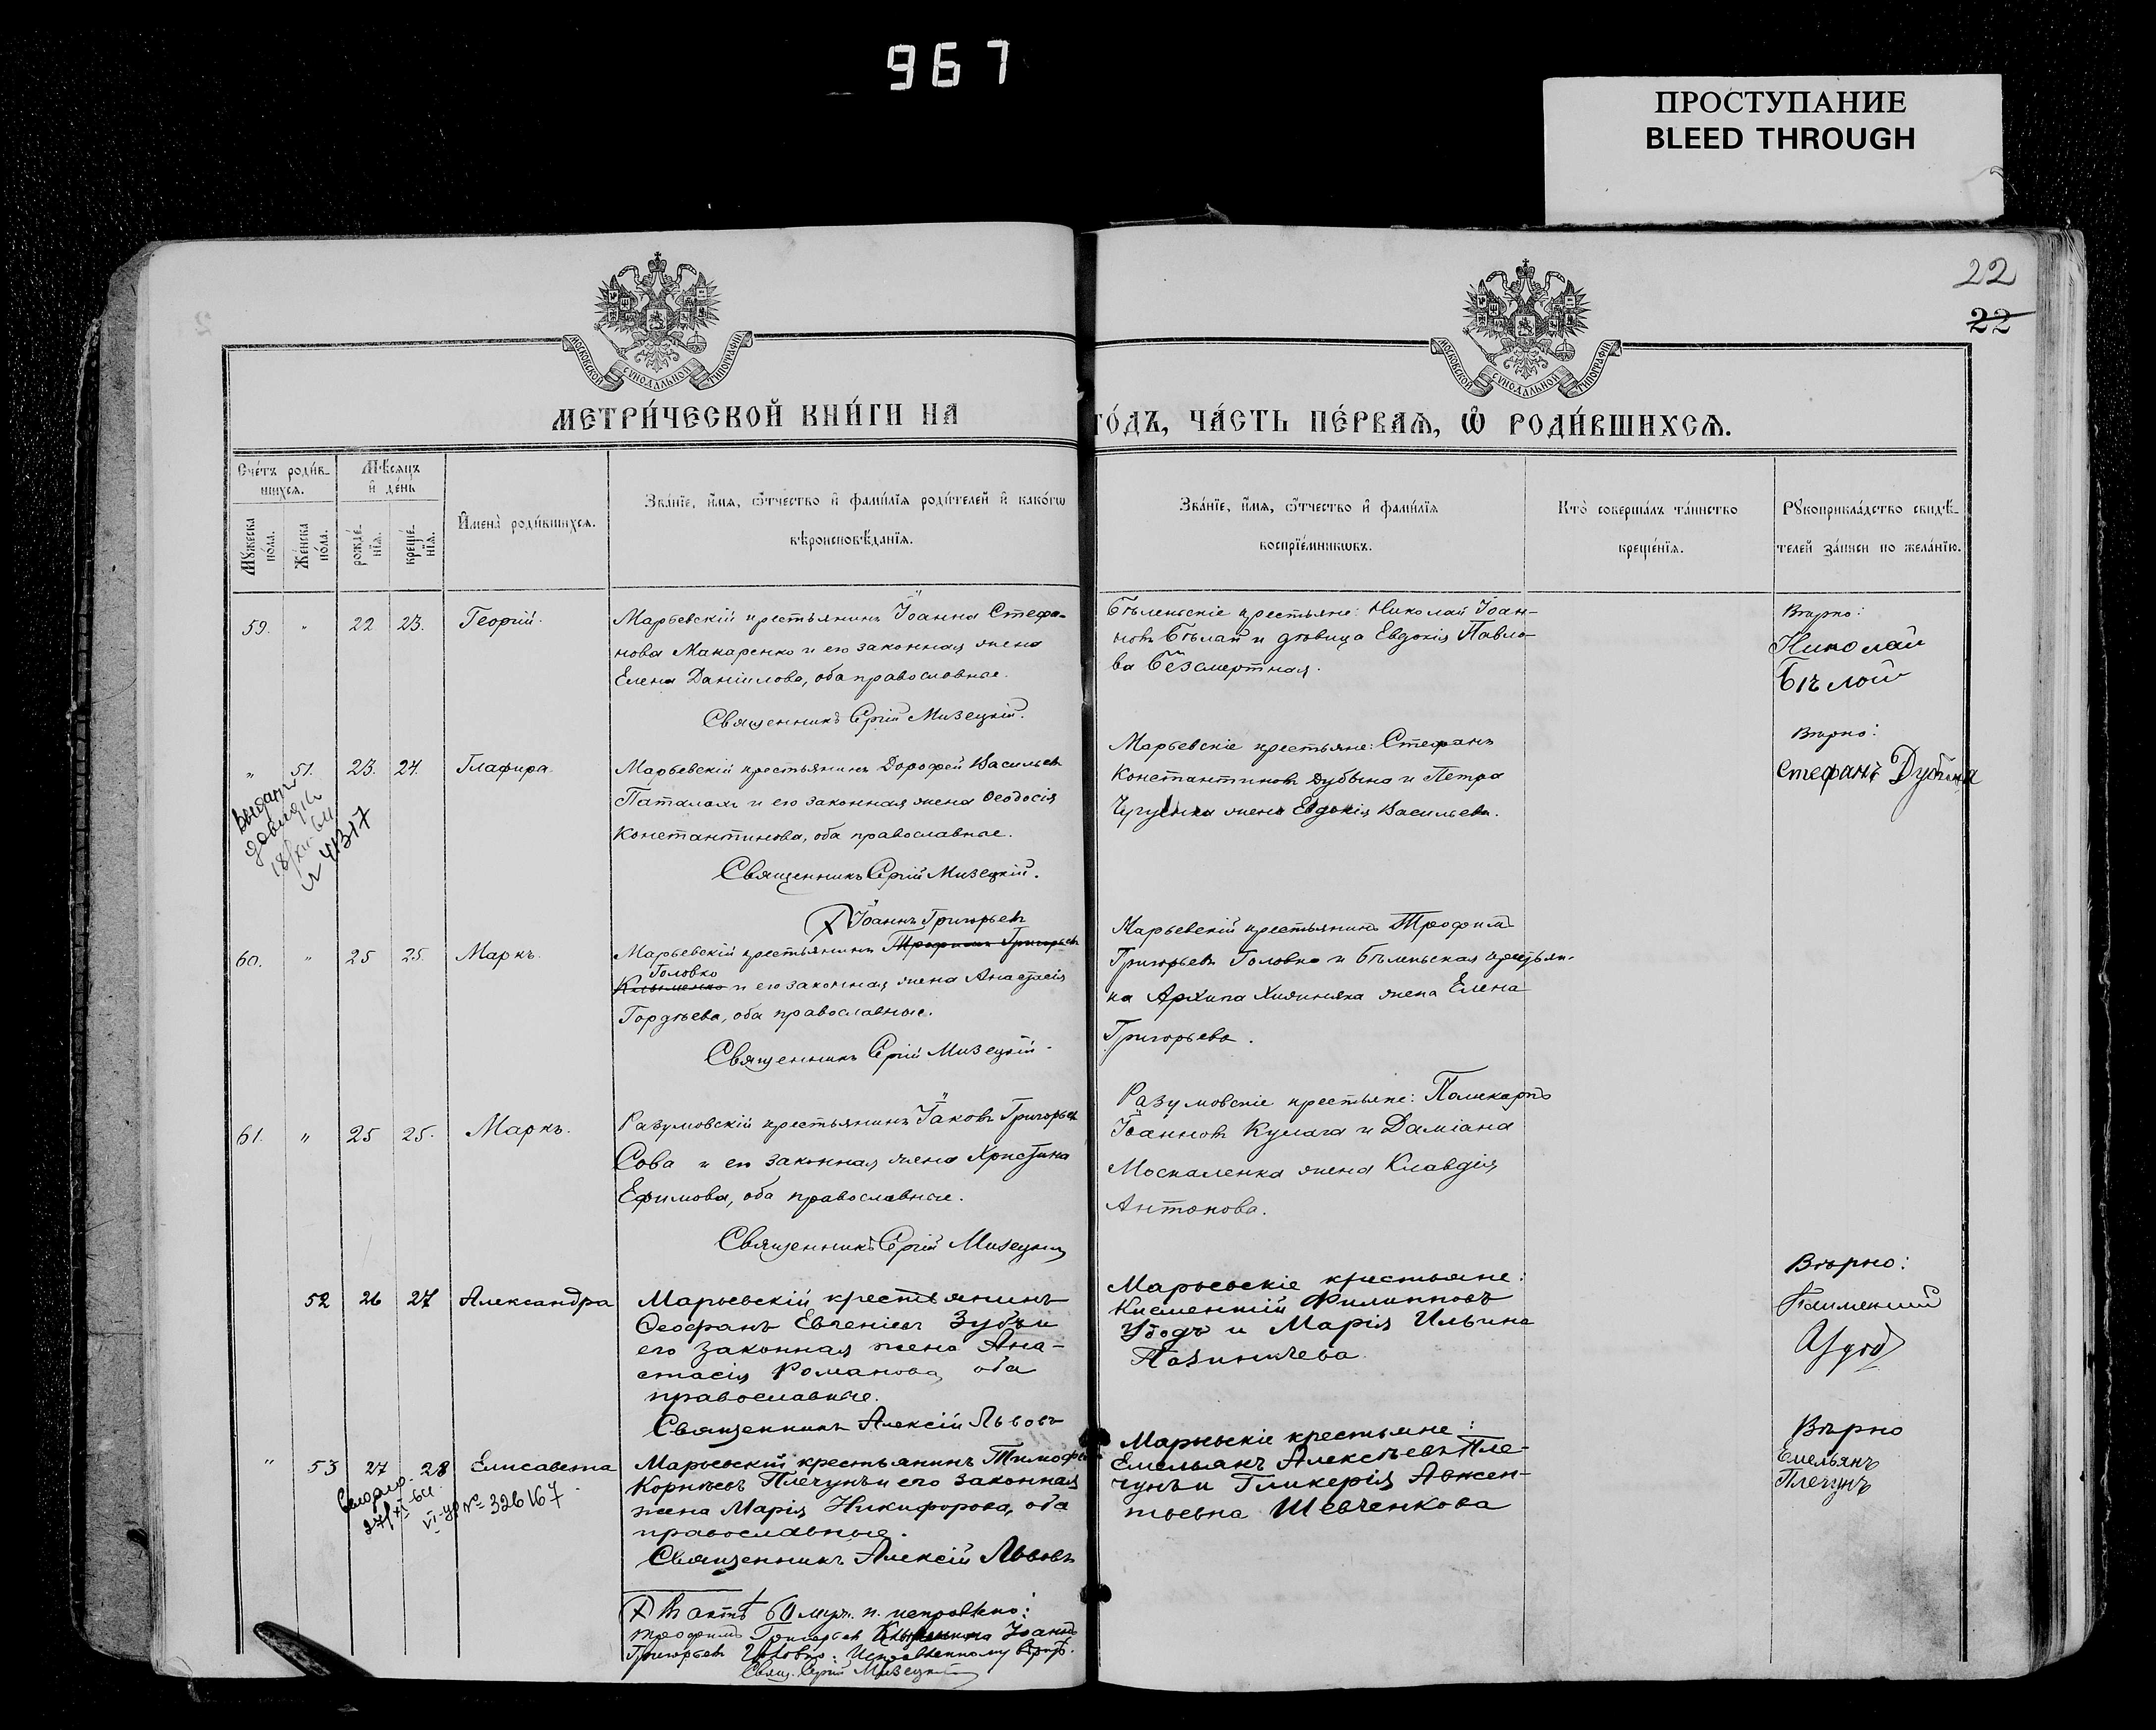 967
ПРОСТУПАНИЕ
BLEED THROUGH
22
22
МОСКОВСКОЙ СУНОДАЛЬНОЙ ТИПОГРАФІИ
МОСКОВСКОЙ СУНОДАЛЬНОЙ ТИПОГРАФІИ
МЕТРИ́ЧЕСКОЙ КНИ́ГИ НА ГО́ДЪ, ЧА́СТЬ ПЕ́РВАѦ, Ѡ РОДИ́ВШИХСѦ.
Сче́тъ роди́в-
шихсѧ.
Мѣ́сѧцъ
и де́нь
Мꙋ́жеска по́ла.
Же́нска по́ла.
рожде́-
нїѧ.
креще́-
нїѧ.
Имена̀ роди́вшихсѧ.
Зва́нїе, и́мѧ, ѻ́тчество и фами́лїѧ роди́телей и како́гѡ
вѣроисповѣ́данїѧ.
Зва́нїе, и́мѧ, ѻ́тчество и фами́лїѧ
воспрїе́мникѡвъ.
Кто̀ соверша́лъ та́инство
креще́нїѧ.
Рꙋкоприкла́дство свидѣ́-
телей за́писи по жела́нїю.
59. " 22 23. Георгій.
Марьевскій крестьянинъ Іоаннъ Стефа-
новъ Макаренко и его законная жена
Елена Даніилова, оба православные.
Священникъ Сергій Мизецкій.
Бѣленьскіе крестьяне: Николай Іоан-
новъ Бѣлай и дѣвица Евдокія Павло-
ва Безсмертная.
Вѣрно:
Николай
Бѣлой
" 51. 23. 24. Глафира.
Выдан
18/XII 64
№ 41317
Марьевскій крестьянинъ Дорофей Васильевъ
Паталахъ и его законная жена Ѳеодосія
Константинова, оба православные.
Священникъ Сергій Мизецкій.
Марьевскіе крестьяне: Стефанъ
Константиновъ Дубына и Петра
жена Евдокія Васильева.
Вѣрно:
Стефанъ Дубына
Іоаннъ Григорьевъ
60. " 25 25. Маркъ.
Марьевскій крестьянинъ Трофимъ Григорьевъ
Головко
Клыменко и его законная жена Анастасія
Гордѣева, оба православные.
Священникъ Сергій Мизецкій.
Марьевскій крестьянинъ Трофимъ
Григорьевъ Головко и Бѣленьская крестьян-
ка Архипа Хижняка жена Елена
Григорьева.
61. " 25 25. Маркъ.
Разумовскій крестьянинъ Іаковъ Григорьевъ
Сова и его законная жена Христина
Ефимова, оба православные.
Священникъ Сергій Мизецкій
Разумовскіе крестьяне: Поликарпъ
Іоанновъ Кулага и Даміана
Москаленка жена Клавдія
Антонова.
52 26 27 Александра
Марьевскій крестьянинъ
Ѳеофанъ Евгеніевъ Зубъ и
его законная жена Ана-
стасія Романова, оба
православные.
Священникъ Алексій Львовъ
Марьевскіе крестьяне:
Климентій Филипповъ
Убодъ и Марія Ильина
Вѣрно:
" 53 27 28 Елисавета
27/XI-64.
VI-УР № 326167
Марьевскій крестьянинъ Тимофей
Корніевъ Плечунъ и его законная
жена Марія Никифорова, оба
православные.
Священникъ Алексій Львовъ
Марьевскіе крестьяне:
Емельянъ Алексѣевъ Пле-
чунъ и Гликерія Авксен-
тьевна Шевченкова
Вѣрно
Емельянъ
Плечунъ
Въ актѣ 60 исправлено:
Трофимъ Григорьевъ Клыменко Іоаннъ
Григорьевъ Головко: Исправленному вѣрить.
Свящ. Сергій Мизецкій